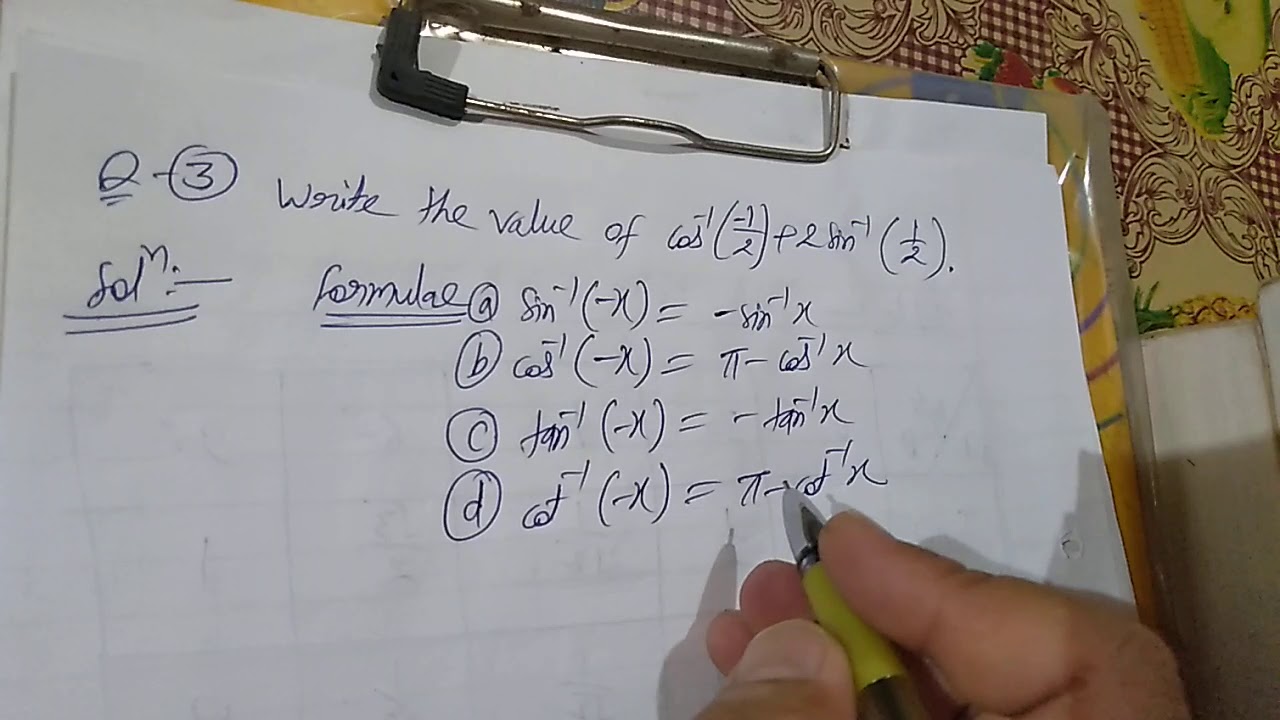 Q-③ Write the value of cos⁻¹(-1/2)+2sin⁻¹(1/2).
Solⁿ:— Formulae ⓐ sin⁻¹(-x) = -sin⁻¹x
ⓑ cos⁻¹(-x) = π- cos⁻¹x
ⓒ tan⁻¹(-x) = -tan⁻¹x
ⓓ cot⁻¹(-x) = π-cot⁻¹x